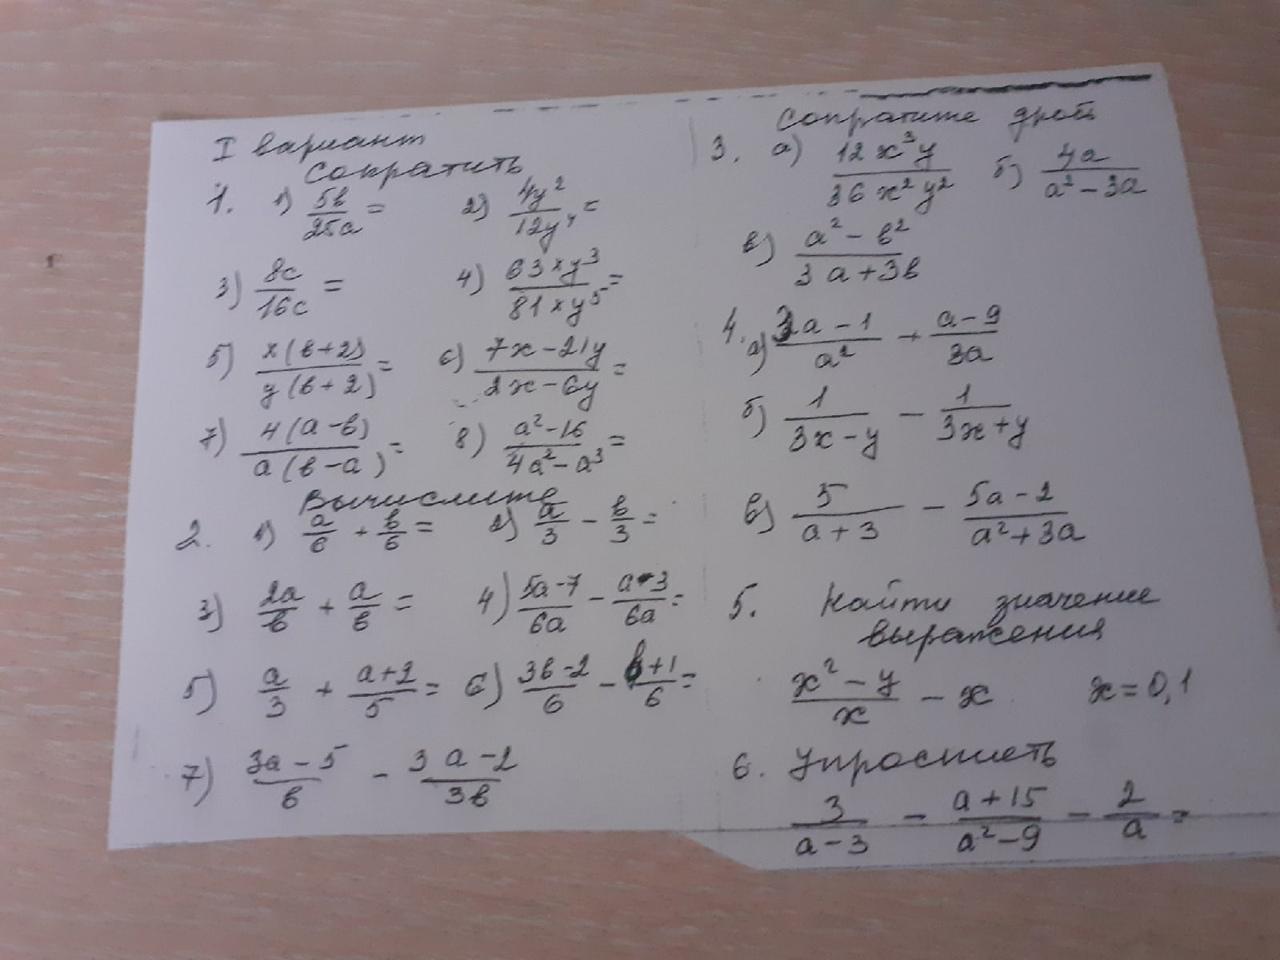 I вариант
Сократить
1. 1) 5в/25а =   2) 4y²/12y⁴ =
3) 8с/16с =   4) 63xy³/81xy⁵ =
5) x(в+2)/y(в+2) =   6) 7x-21y/2x-6y =
7) 4(а-в)/а(в-а) =   8) а²-16/4а²-а³ =
Вычислите
2. 1) а/6 + в/6 =   2) а/3 - в/3 =
3) 2а/в + а/в =   4) 5а-7/6а - а-3/6а =
5) а/3 + а+2/5 =   6) 3в-2/6 - в+1/6 =
7) 3а-5/в - 3а-2/3в
Сократите дробь
3. а) 12x³y/36x²y²   б) 4а/а²-3а
в) а²-в²/3а+3в
4. а) 3а-1/а² + а-9/3а
б) 1/3x-y - 1/3x+y
в) 5/а+3 - 5а-2/а²+3а
5. Найти значение
выражения
x²-y/x - x   x=0,1
6. Упростить
3/а-3 - а+15/а²-9 - 2/а =